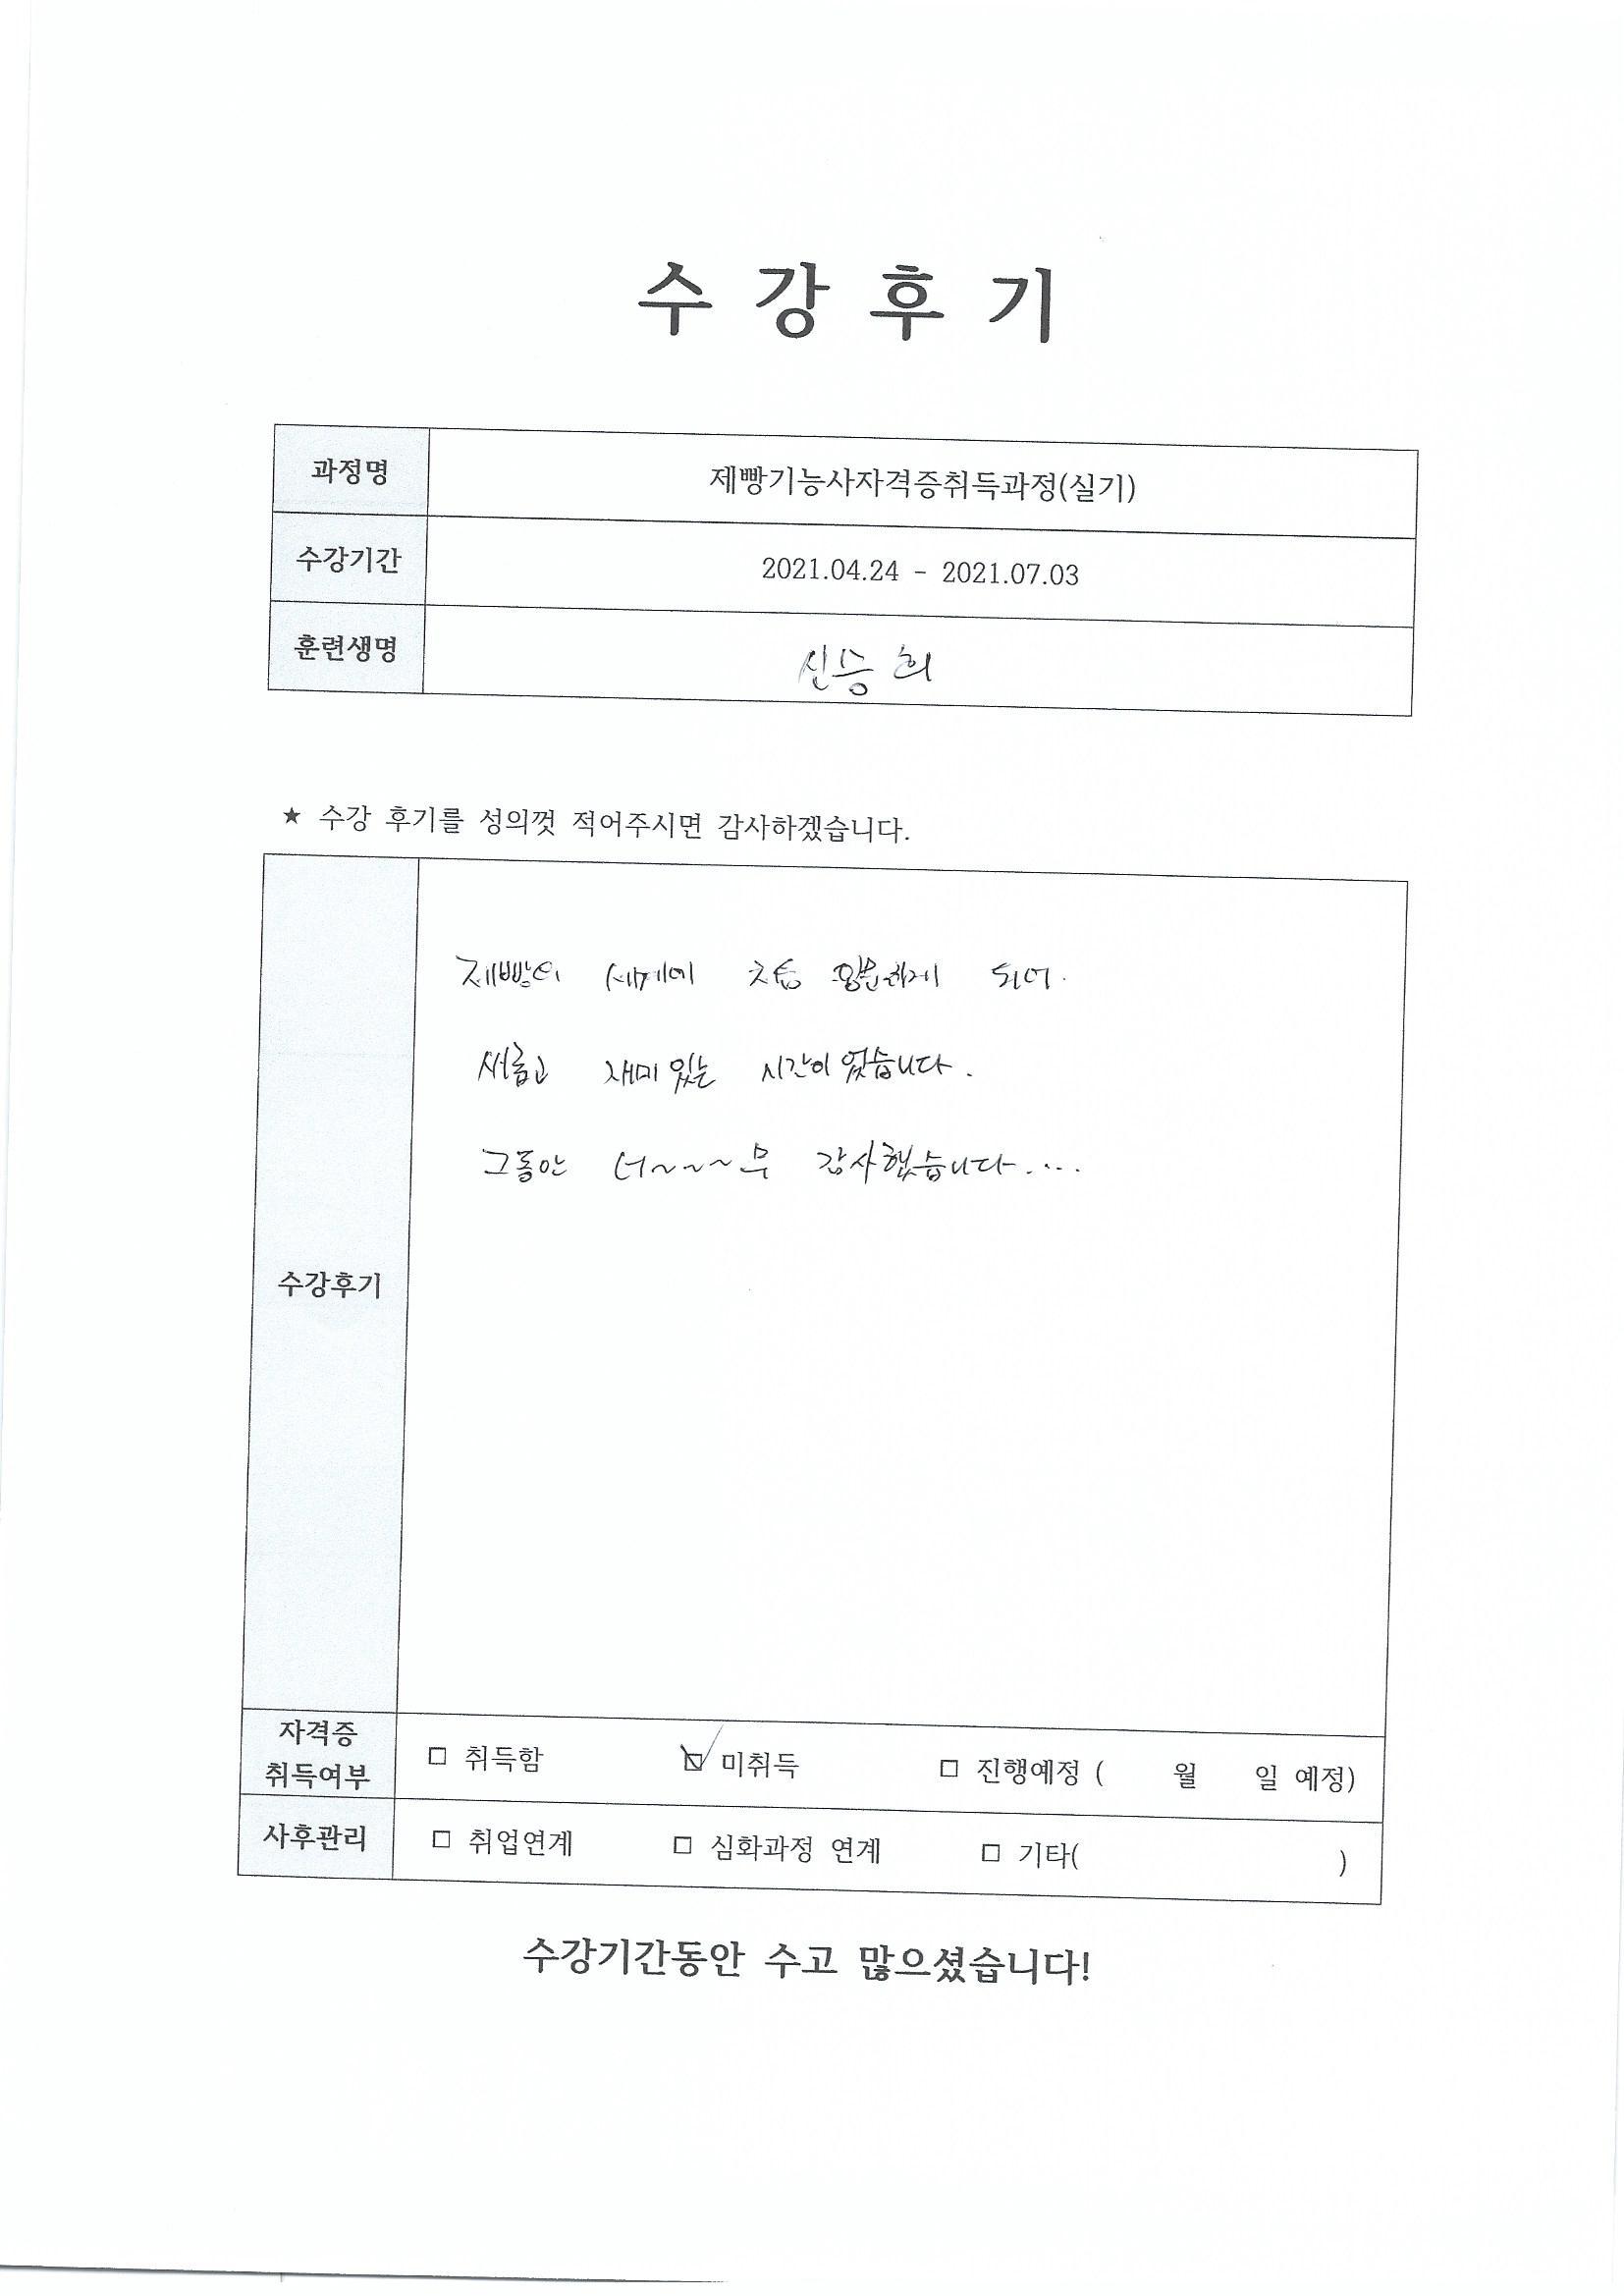 수 강 후 기
과정명 제빵기능사자격증취득과정(실기)
수강기간 2021.04.24 - 2021.07.03
훈련생명 신승희
★ 수강 후기를 성의껏 적어주시면 감사하겠습니다.
제빵의 세계에 처음 입문하게 되어.
새롭고 재미있는 시간이었습니다.
그동안 너~~~무 감사했습니다....
수강후기
자격증
취득여부 □ 취득함 ☑ 미취득 □ 진행예정 ( 월 일 예정)
사후관리 □ 취업연계 □ 심화과정 연계 □ 기타( )
수강기간동안 수고 많으셨습니다!